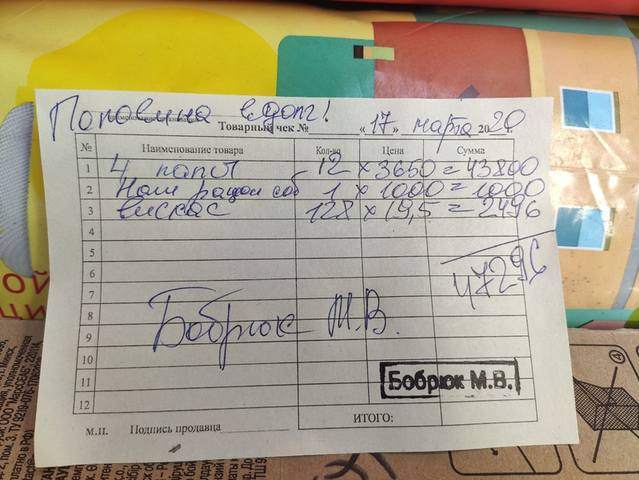 Половина в долг!
Товарный чек № «17» марта 2020 г.
№ Наименование товара Кол-во Цена Сумма
1 4 лапы 12 × 3650 = 43800
2 Наш рацион соб 1 × 1000 = 1000
3 вискас 128 × 19,5 = 2496
4
5
6 47296
7
8 Бобрюк М.В.
9
10
11 Бобрюк М.В.
12
ИТОГО:
М.П. Подпись продавца
ОЙ
4